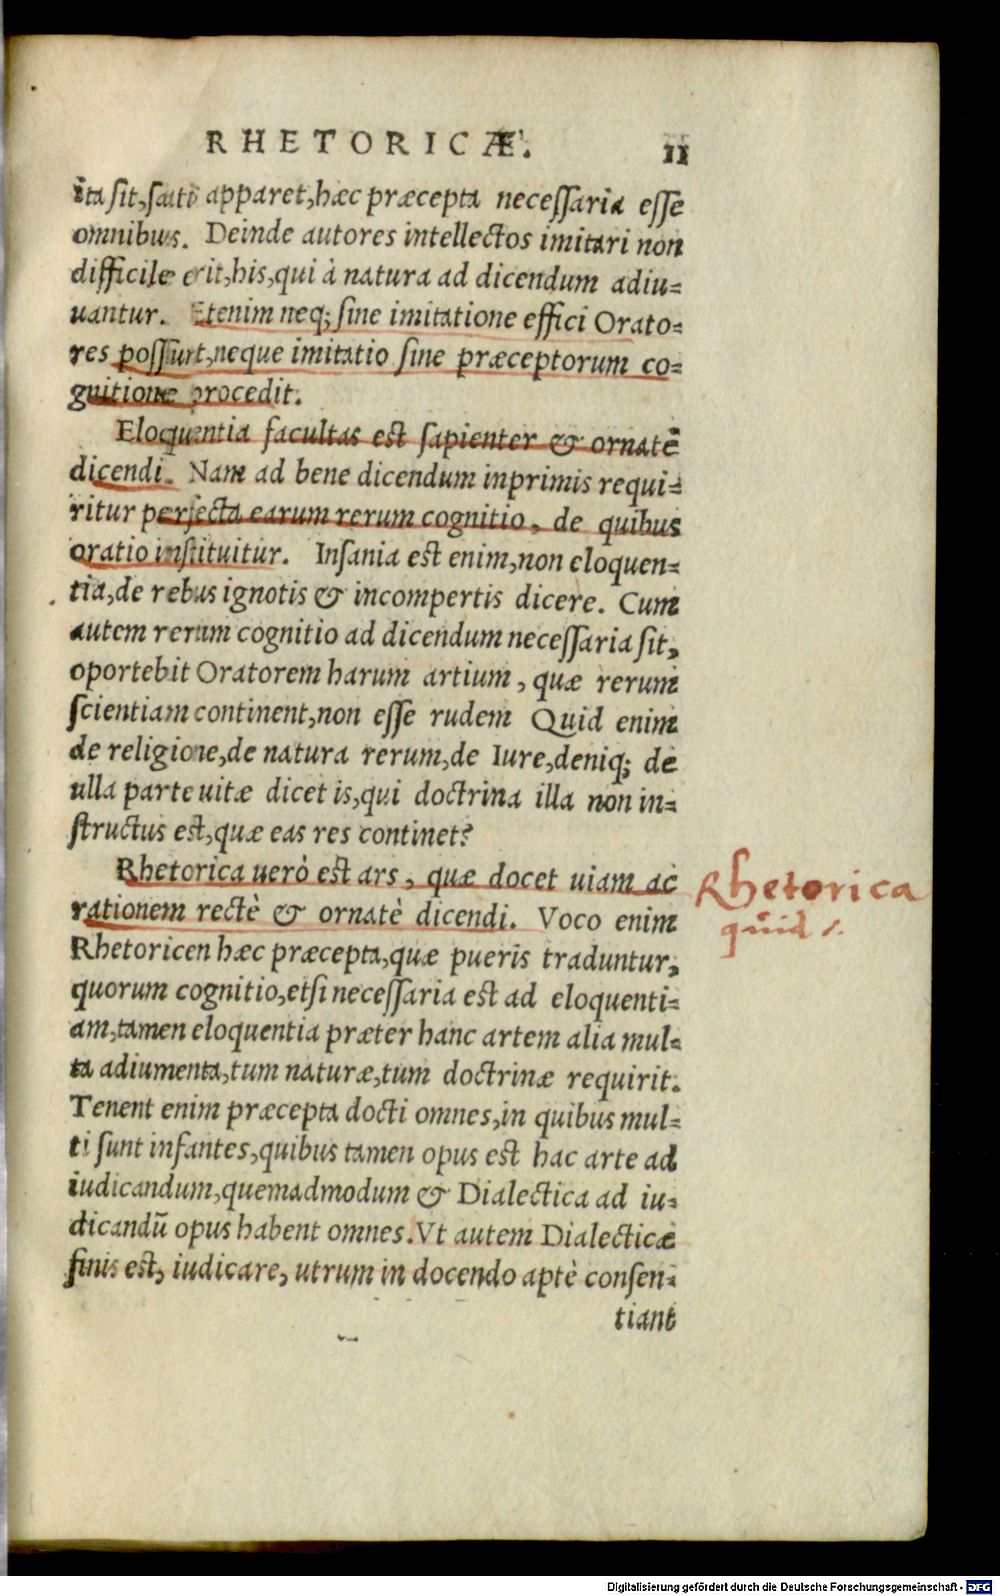 RHETORICÆ.
11
ita sit, satis apparet, hæc præcepta necessaria esse
omnibus. Deinde autores intellectos imitari non
difficile erit, his, qui à natura ad dicendum adiu-
uantur. Etenim neq; sine imitatione effici Orato-
res possunt, neque imitatio sine præceptorum co-
gnitione procedit.
Eloquentia facultas est sapienter & ornatè
dicendi. Nam ad bene dicendum inprimis requi-
ritur perfecta earum rerum cognitio, de quibus
oratio instituitur. Insania est enim, non eloquen-
tia, de rebus ignotis & incompertis dicere. Cum
autem rerum cognitio ad dicendum necessaria sit,
oportebit Oratorem harum artium, quæ rerum
scientiam continent, non esse rudem Quid enim
de religione, de natura rerum, de Iure, deniq; de
ulla parte uitæ dicet is, qui doctrina illa non in-
structus est, quæ eas res continet?
Rhetorica uerò est ars, quæ docet uiam ac
rationem rectè & ornatè dicendi. Voco enim
Rhetoricen hæc præcepta, quæ pueris traduntur,
quorum cognitio, etsi necessaria est ad eloquenti-
am, tamen eloquentia præter hanc artem alia mul-
ta adiumenta, tum naturæ, tum doctrinæ requirit.
Tenent enim præcepta docti omnes, in quibus mul-
ti sunt infantes, quibus tamen opus est hac arte ad
iudicandum, quemadmodum & Dialectica ad iu-
dicandū opus habent omnes. Vt autem Dialecticæ
finis est, iudicare, utrum in docendo aptè consen-
tiant
Rhetorica
quid
Digitalisierung gefördert durch die Deutsche Forschungsgemeinschaft - DFG